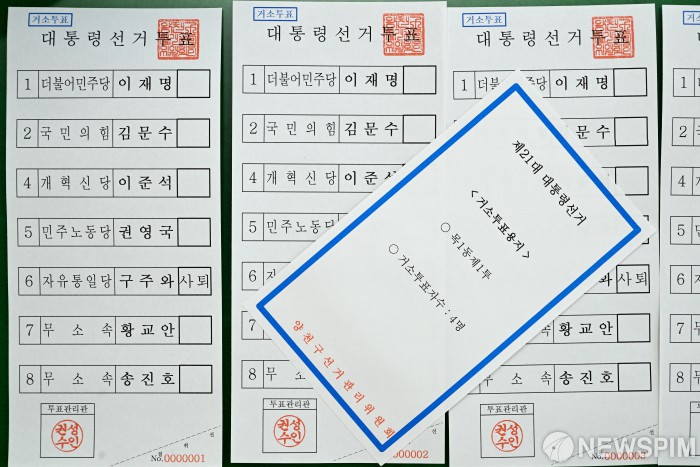 거소투표
대통령선거투표
1 더불어민주당 이재명
2 국민의힘 김문수
4 개혁신당 이준석
5 민주노동당 권영국
6 자유통일당 구주와 사퇴
7 무소속 황교안
8 무소속 송진호
투표관리관
권성수인
No.0000001
거소투표
대통령선거투표
1 더불어민주당 이재명
2 국민의힘 김문수
4 개혁신당 이준석
5 민주노동당
6
7
8 무
투표관리관
권성수인
0000002
거소투표
대통령선거투표
1 더불어민주당 이재명
문수
사퇴
황교안
8 무소속 송진호
투표관리관
No.000000
1
2
4
5
6
7
8
제21대 대통령선거
< 거소투표용지 >
○ 목1동제1투
○ 거소투표자수 : 4명
양천구선거관리위원회
NEWSPIM